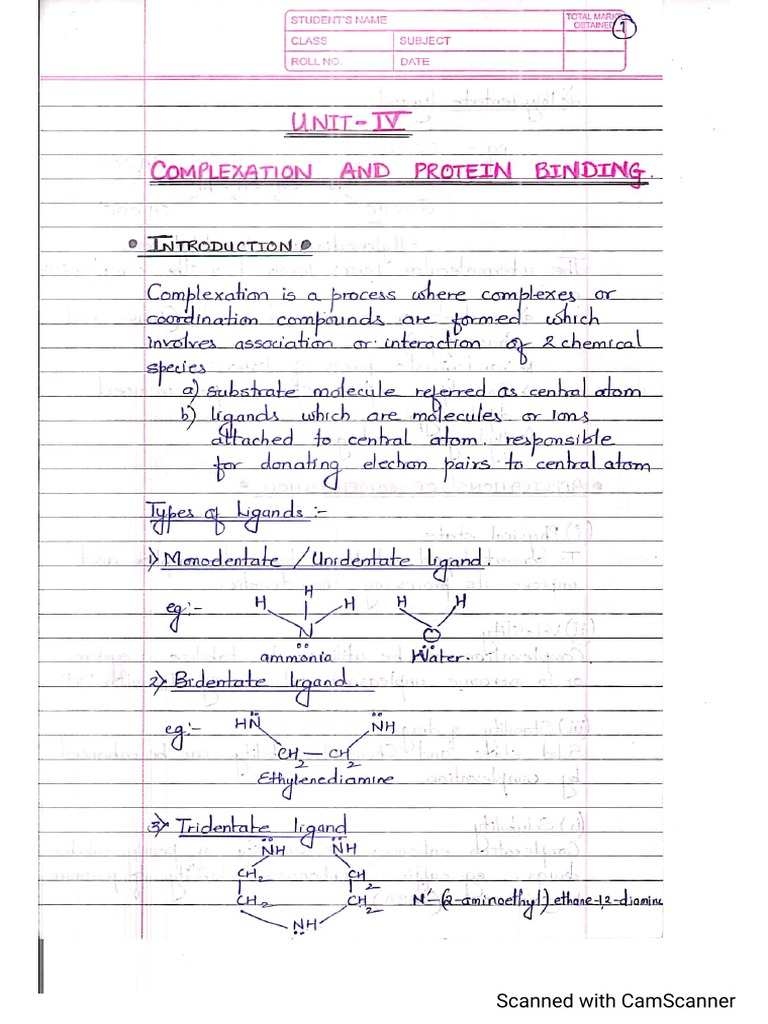 STUDENT'S NAME
TOTAL MARKS OBTAINED
1
CLASS SUBJECT
ROLL NO. DATE
UNIT-IV
COMPLEXATION AND PROTEIN BINDING.
• INTRODUCTION •
Complexation is a process where complexes or
coordination compounds are formed which
involves association or interaction of 2 chemical
species
a) substrate molecule referred as central atom
b) ligands which are molecules or ions
attached to central atom. responsible
for donating electron pairs to central atom
Types of Ligands :-
1) Monodentate / Unidentate ligand.
eg:- H H H N H H O
ammonia Water.
2) Bidentate ligand.
eg:- HN NH
CH2 — CH2
Ethylenediamine
3) Tridentate ligand
NH NH
CH2 CH2
CH2 CH2 N'-(2-aminoethyl) ethane-1,2-diamine
NH
Scanned with CamScanner